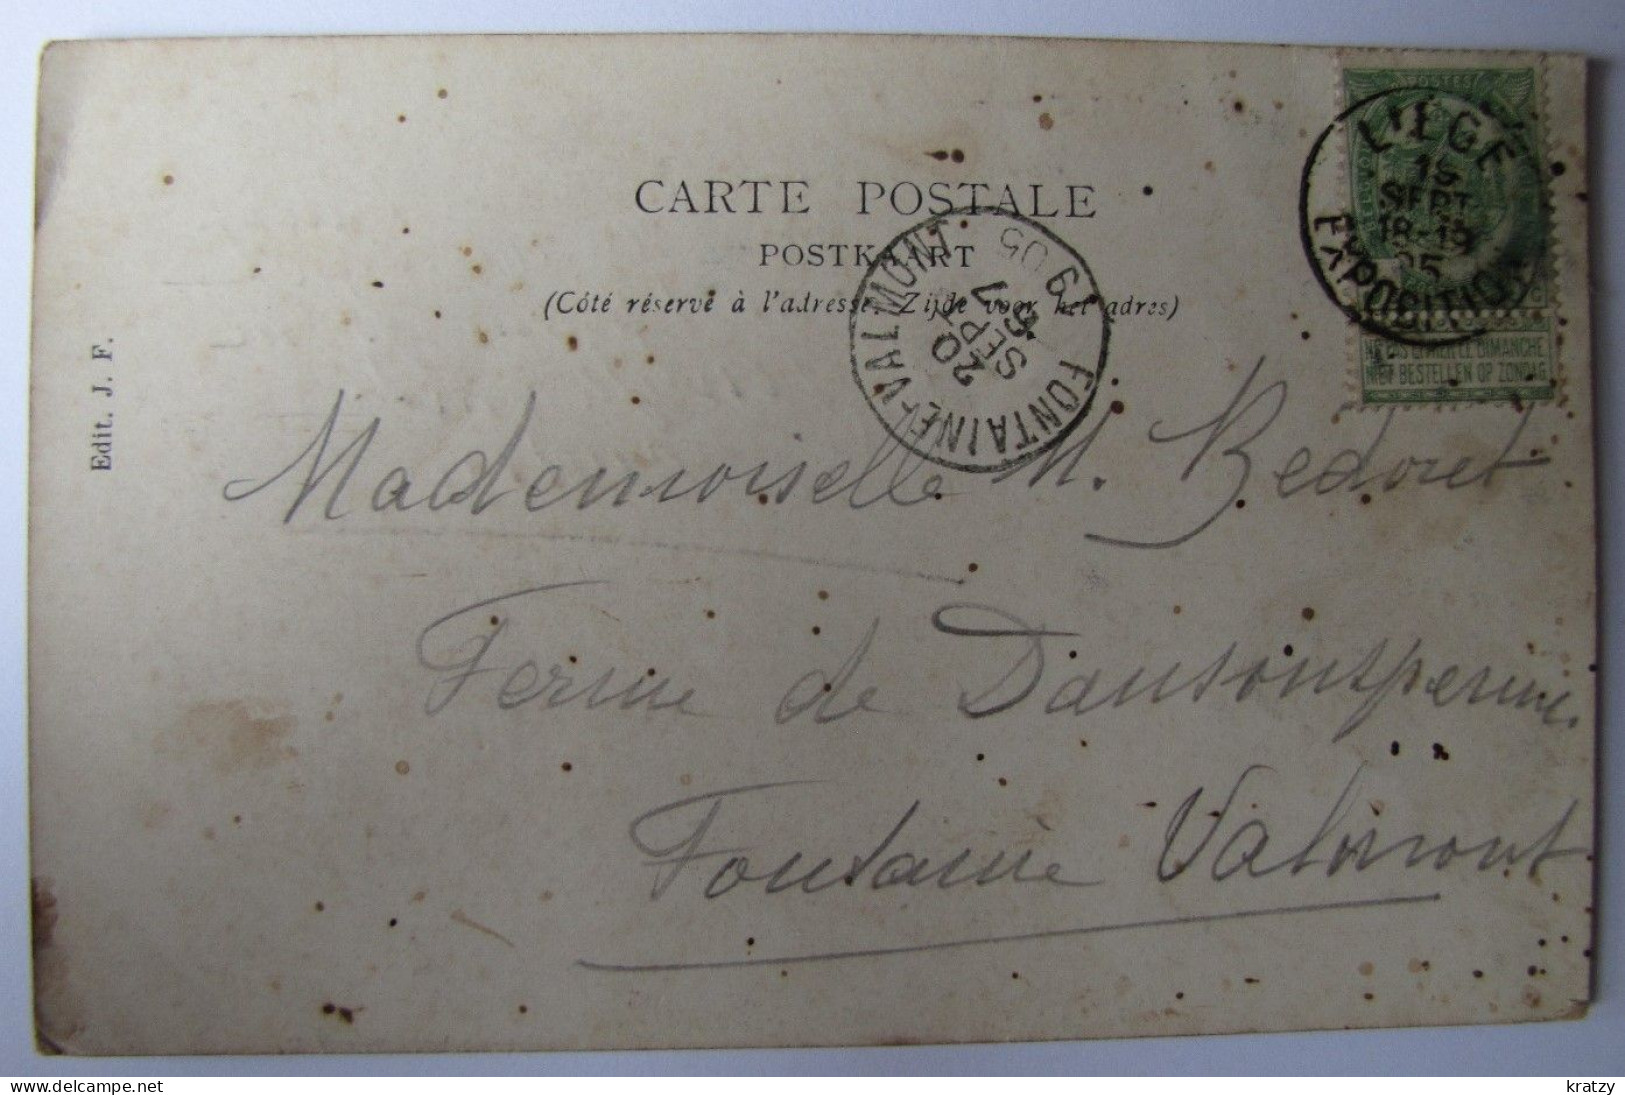 CARTE POSTALE
POSTKAART
(Côté réservé à l'adresse. Zijde voor het adres)
Edit. J. F.
POSTES
LIÉGE
15
SEPT
18-19
05
EXPOSITION
NE PAS LIVRER LE DIMANCHE
NIET BESTELLEN OP ZONDAG
FONTAINE-VALMONT
20
SEPT
05
Mademoiselle M. Bedoret
Ferme de Dansonsperme
Fontaine Valmont
© kratzy